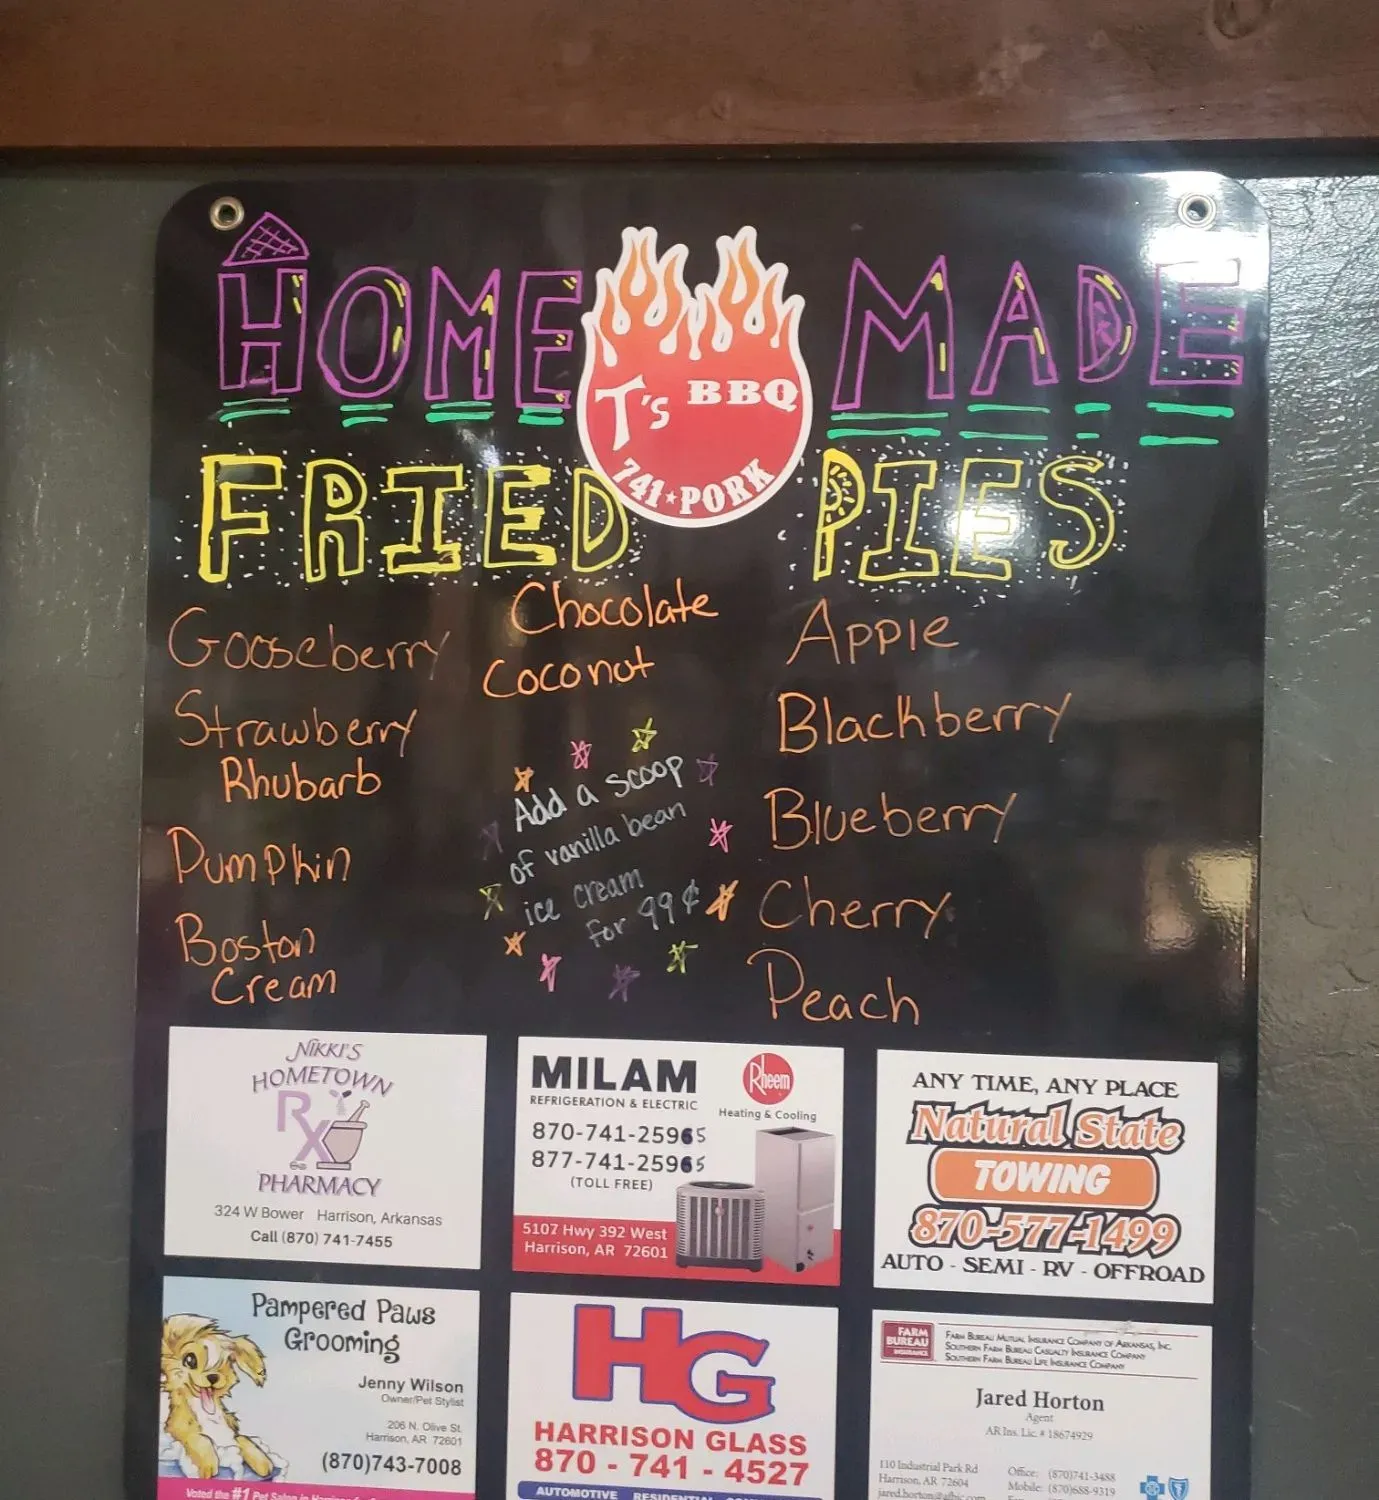 HOME MADE
T's BBQ
741★PORK
FRIED PIES
Gooseberry
Strawberry
Rhubarb
Pumpkin
Boston
Cream
Chocolate
Coconut
Add a scoop
of vanilla bean
ice cream
for 99¢
Apple
Blackberry
Blueberry
Cherry
Peach
NIKKI'S
HOMETOWN
Rx
PHARMACY
324 W Bower Harrison, Arkansas
Call (870) 741-7455
MILAM
REFRIGERATION & ELECTRIC
Rheem
Heating & Cooling
870-741-25965
877-741-25965
(TOLL FREE)
5107 Hwy 392 West
Harrison, AR 72601
ANY TIME, ANY PLACE
Natural State
TOWING
870-577-1499
AUTO - SEMI - RV - OFFROAD
Pampered Paws
Grooming
Jenny Wilson
Owner/Pet Stylist
206 N. Olive St.
Harrison, AR 72601
(870)743-7008
Voted the #1 Pet Salon in
HG
HARRISON GLASS
870 - 741 - 4527
AUTOMOTIVE RESIDENTIAL
FARM
BUREAU
INSURANCE
FARM BUREAU MUTUAL INSURANCE COMPANY OF ARKANSAS, INC.
SOUTHERN FARM BUREAU CASUALTY INSURANCE COMPANY
SOUTHERN FARM BUREAU LIFE INSURANCE COMPANY
Jared Horton
Agent
AR Ins. Lic. # 18674929
110 Industrial Park Rd
Harrison, AR 72604
Office: (870)741-3488
Mobile: (870)688-9319